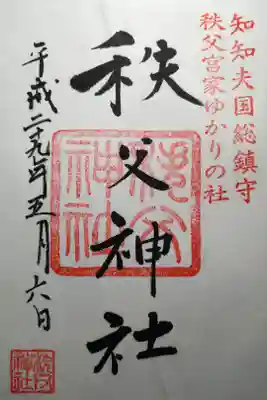 知知夫国総鎮守
秩父宮家ゆかりの社
秩父神社
平成二十九年五月六日
秩父
神社